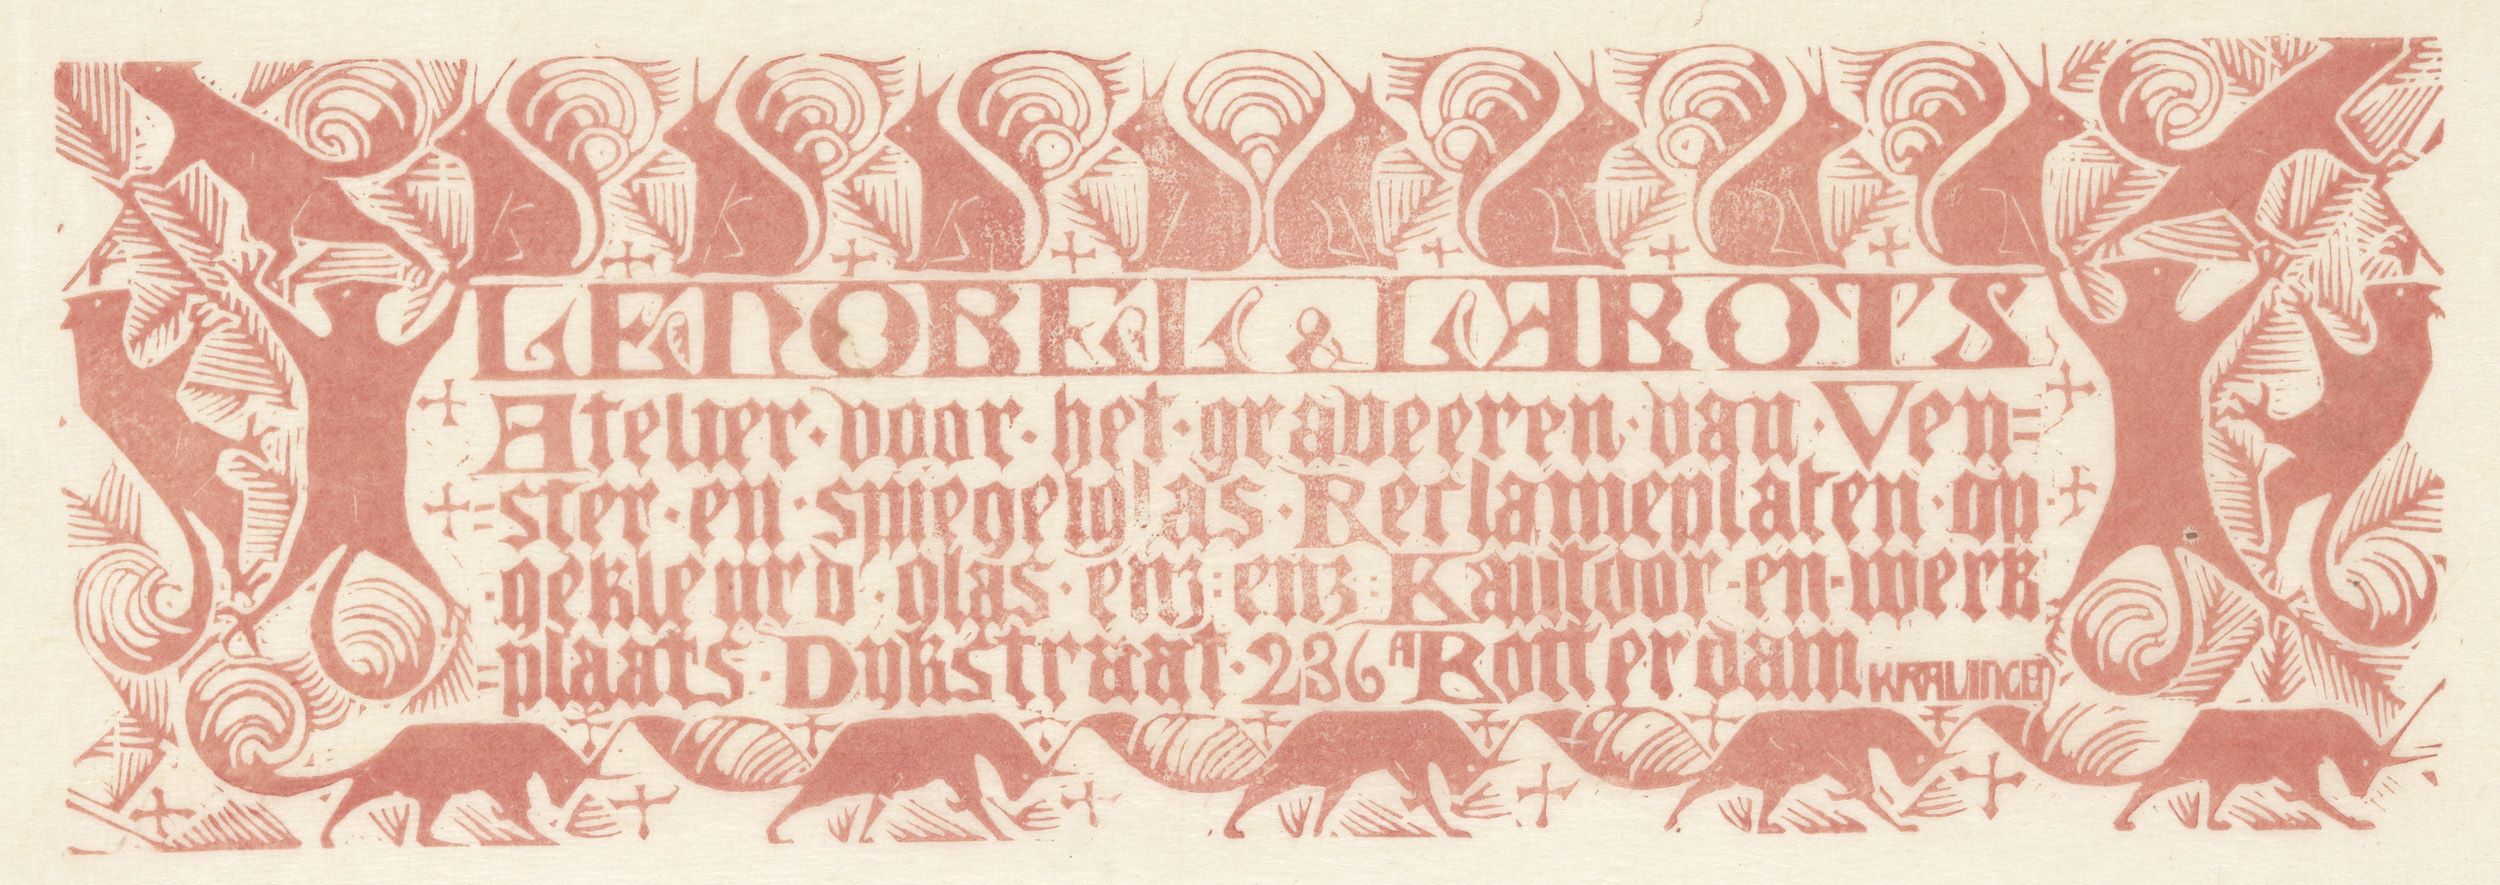 LENOBEL & LABOTS
Atelier·voor·het·graveeren·van·Ven=
=ster·en·spiegelglas·Reclameplaten·op·
·gekleurd·glas·enz:enz:Kantoor-en-werk
=plaats·Dijkstraat·236A Rotterdam KRALINGEN